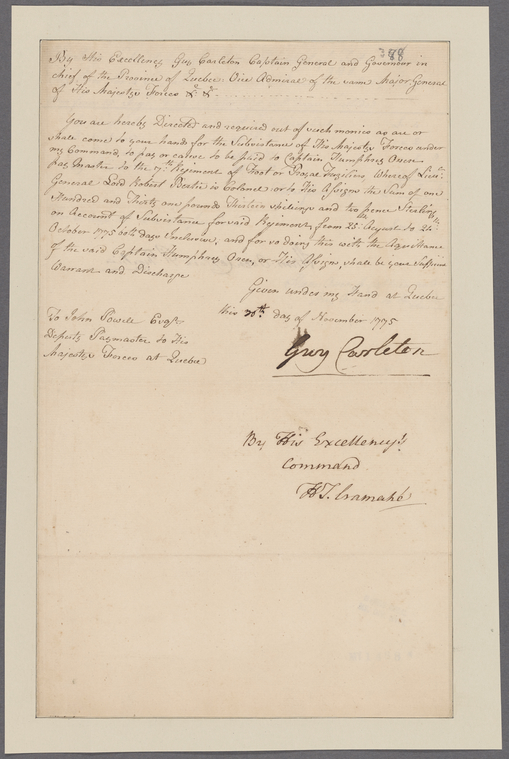 388
By His Excellency Guy Carleton Captain General and Governor in
chief of the Province of Quebec Vice Admiral of the same Major General
of His Majestys Forces &c &c.
You are hereby Directed and required out of such monies as are or
shall come to your hands for the Subsistance of His Majestys Forces under
my Command, to pay or cause to be paid to Captain Humphrey Owen
pay Master to the 7th Regiment of Foot or Royal Fuziliers Whereof Lieut
General Lord Robert Bertie is Colonel or to His Assigns the Sum of one
Hundred and Thirty one pounds Thirteen Shillings and two pence Sterling
on Account of Subsistance for said Regiment, from 25th August to 24th
October 1775 both days Inclusive, and for so doing this with the Acquittance
of the said Captain Humphrey Owen, or His Assigns, shall be your Sufficient
Warrant and Discharge
Given under my Hand at Quebec
this 20th day of November 1775
To John Powell Esqr
Deputy Paymaster to His
Majestys Forces at Quebec
Guy Carleton
By His Excellency's
Command
H T. Cramahé